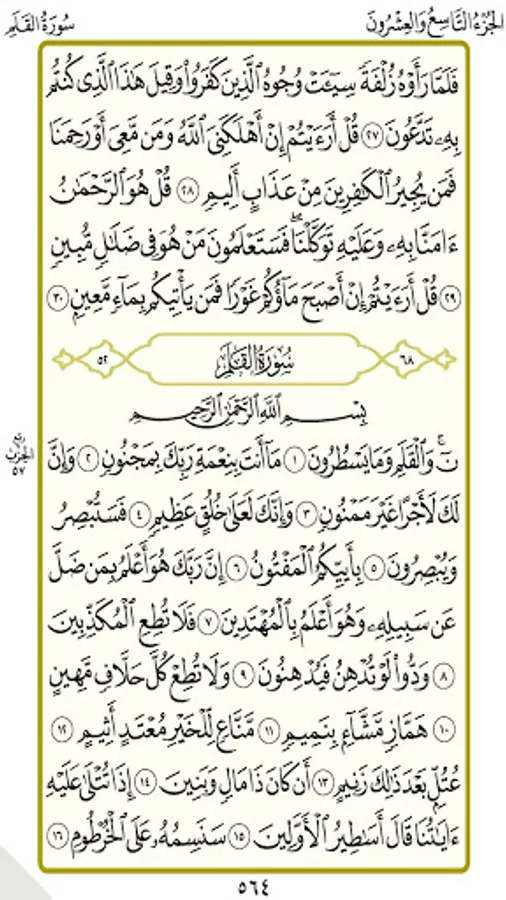 الجُزْءُ التَّاسِعُ وَالعِشْرُونَ سُورَةُ القَلَمِ
فَلَمَّا رَأَوْهُ زُلْفَةً سِيٓـَٔتْ وُجُوهُ ٱلَّذِينَ كَفَرُوا۟ وَقِيلَ هَٰذَا ٱلَّذِى كُنتُم
بِهِۦ تَدَّعُونَ ٢٧ قُلْ أَرَءَيْتُمْ إِنْ أَهْلَكَنِىَ ٱللَّهُ وَمَن مَّعِىَ أَوْ رَحِمَنَا
فَمَن يُجِيرُ ٱلْكَٰفِرِينَ مِنْ عَذَابٍ أَلِيمٍ ٢٨ قُلْ هُوَ ٱلرَّحْمَٰنُ
ءَامَنَّا بِهِۦ وَعَلَيْهِ تَوَكَّلْنَا ۖ فَسَتَعْلَمُونَ مَنْ هُوَ فِى ضَلَٰلٍ مُّبِينٍ
٢٩ قُلْ أَرَءَيْتُمْ إِنْ أَصْبَحَ مَآؤُكُمْ غَوْرًا فَمَن يَأْتِيكُم بِمَآءٍ مَّعِينٍۭ ٣٠
٦٨ سُورَةُ القَلَمِ ٥٢
بِسْمِ ٱللَّهِ ٱلرَّحْمَٰنِ ٱلرَّحِيمِ
نٓ ۚ وَٱلْقَلَمِ وَمَا يَسْطُرُونَ ١ مَآ أَنتَ بِنِعْمَةِ رَبِّكَ بِمَجْنُونٍ ٢ وَإِنَّ
ربع الحزب ٥٧
لَكَ لَأَجْرًا غَيْرَ مَمْنُونٍ ٣ وَإِنَّكَ لَعَلَىٰ خُلُقٍ عَظِيمٍ ٤ فَسَتُبْصِرُ
وَيُبْصِرُونَ ٥ بِأَييِّكُمُ ٱلْمَفْتُونُ ٦ إِنَّ رَبَّكَ هُوَ أَعْلَمُ بِمَن ضَلَّ
عَن سَبِيلِهِۦ وَهُوَ أَعْلَمُ بِٱلْمُهْتَدِينَ ٧ فَلَا تُطِعِ ٱلْمُكَذِّبِينَ
٨ وَدُّوا۟ لَوْ تُدْهِنُ فَيُدْهِنُونَ ٩ وَلَا تُطِعْ كُلَّ حَلَّافٍ مَّهِينٍ
١٠ هَمَّازٍ مَّشَّآءٍۭ بِنَمِيمٍ ١١ مَّنَّاعٍ لِّلْخَيْرِ مُعْتَدٍ أَثِيمٍ ١٢
عُتُلٍّۭ بَعْدَ ذَٰلِكَ زَنِيمٍ ١٣ أَن كَانَ ذَا مَالٍ وَبَنِينَ ١٤ إِذَا تُتْلَىٰ عَلَيْهِ
ءَايَٰتُنَا قَالَ أَسَٰطِيرُ ٱلْأَوَّلِينَ ١٥ سَنَسِمُهُۥ عَلَى ٱلْخُرْطُومِ ١٦
٥٦٤